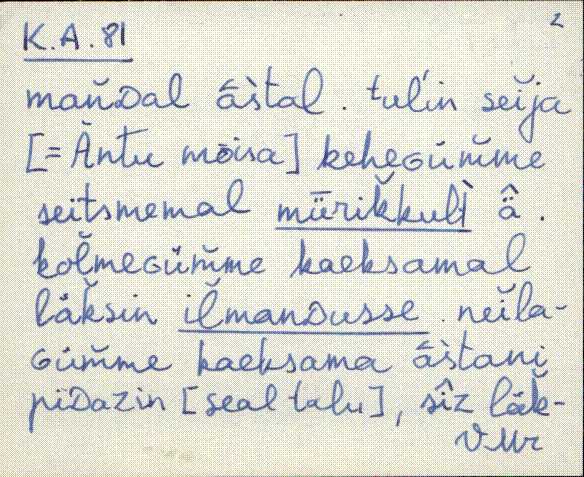 2
K.A. 81
man̆Dal âs̀tal . tuĺin seĭja
[= Āntu mõisa] keheGüm̆me
seitsmemal mūrik̆kulì ä̂ .
kol̆meGüm̆me kaeksamal
läk̆sin il̆manDusse . neĭla-
Güm̆me kaeksama âs̀tani
piDazin [seal talu], sîz läk-
VMr